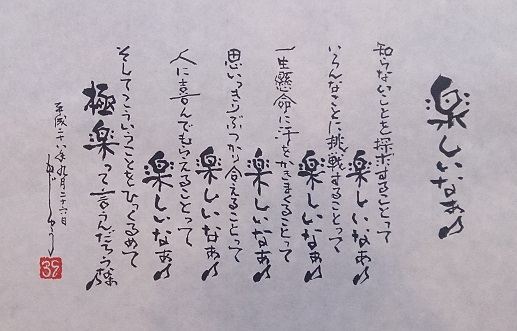 楽しいなぁ♪
知らないことを探求することって
楽しいなぁ♪
いろんなことに挑戦することって
楽しいなぁ♪
一生懸命に汗をかきまくることって
楽しいなぁ♪
思いっきりぶつかり合えることって
楽しいなぁ♪
人に喜んでもらえることって
楽しいなぁ♪
そしてこういうことをひっくるめて
極楽って言うんだろう
平成二十八年九月二十六日
39